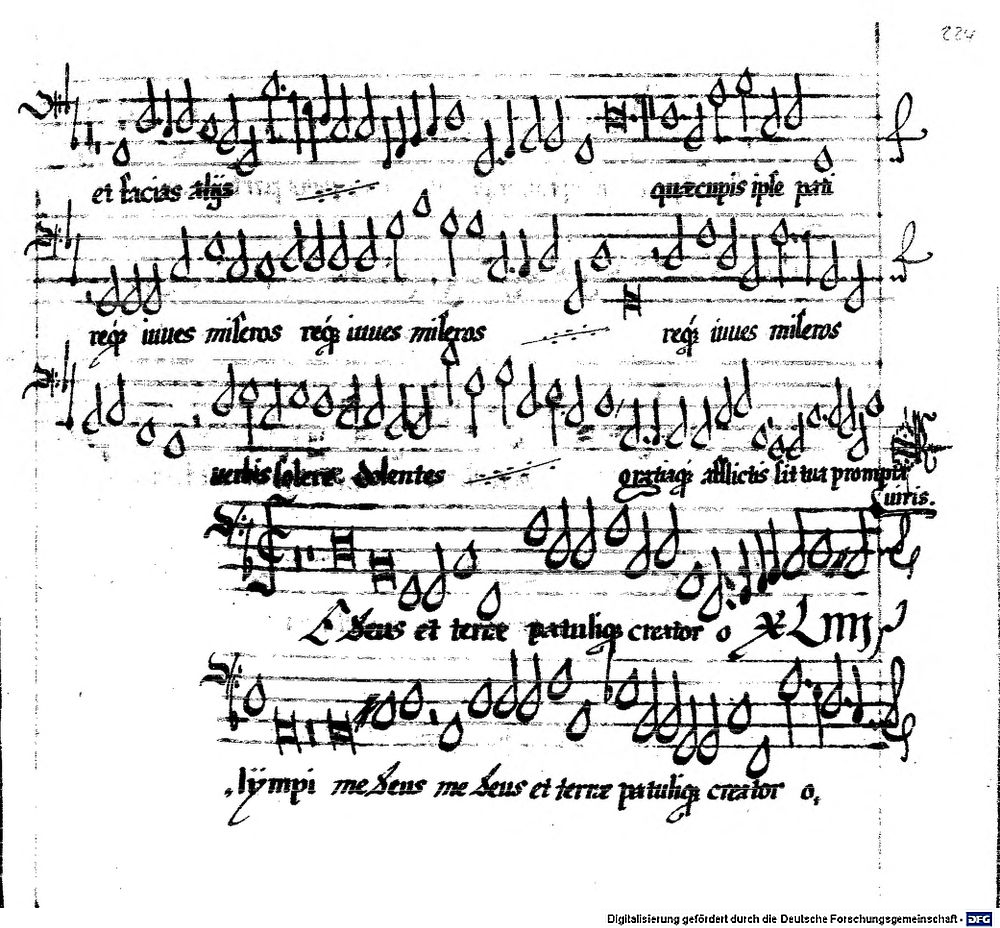 224
et facias alijs quæcupis ipse pati
reqꝫ iuues miseros reqꝫ iuues miseros reqꝫ iuues miseros
verbis solere dolentes oratiaqꝫ afflictis sit tua prompta
uiris.
E deus et terræ patuliqꝫ creator o XLIIIJ
lÿmpi me deus me deus et terræ patuliqꝫ creator o,
Digitalisierung gefördert durch die Deutsche Forschungsgemeinschaft - DFG